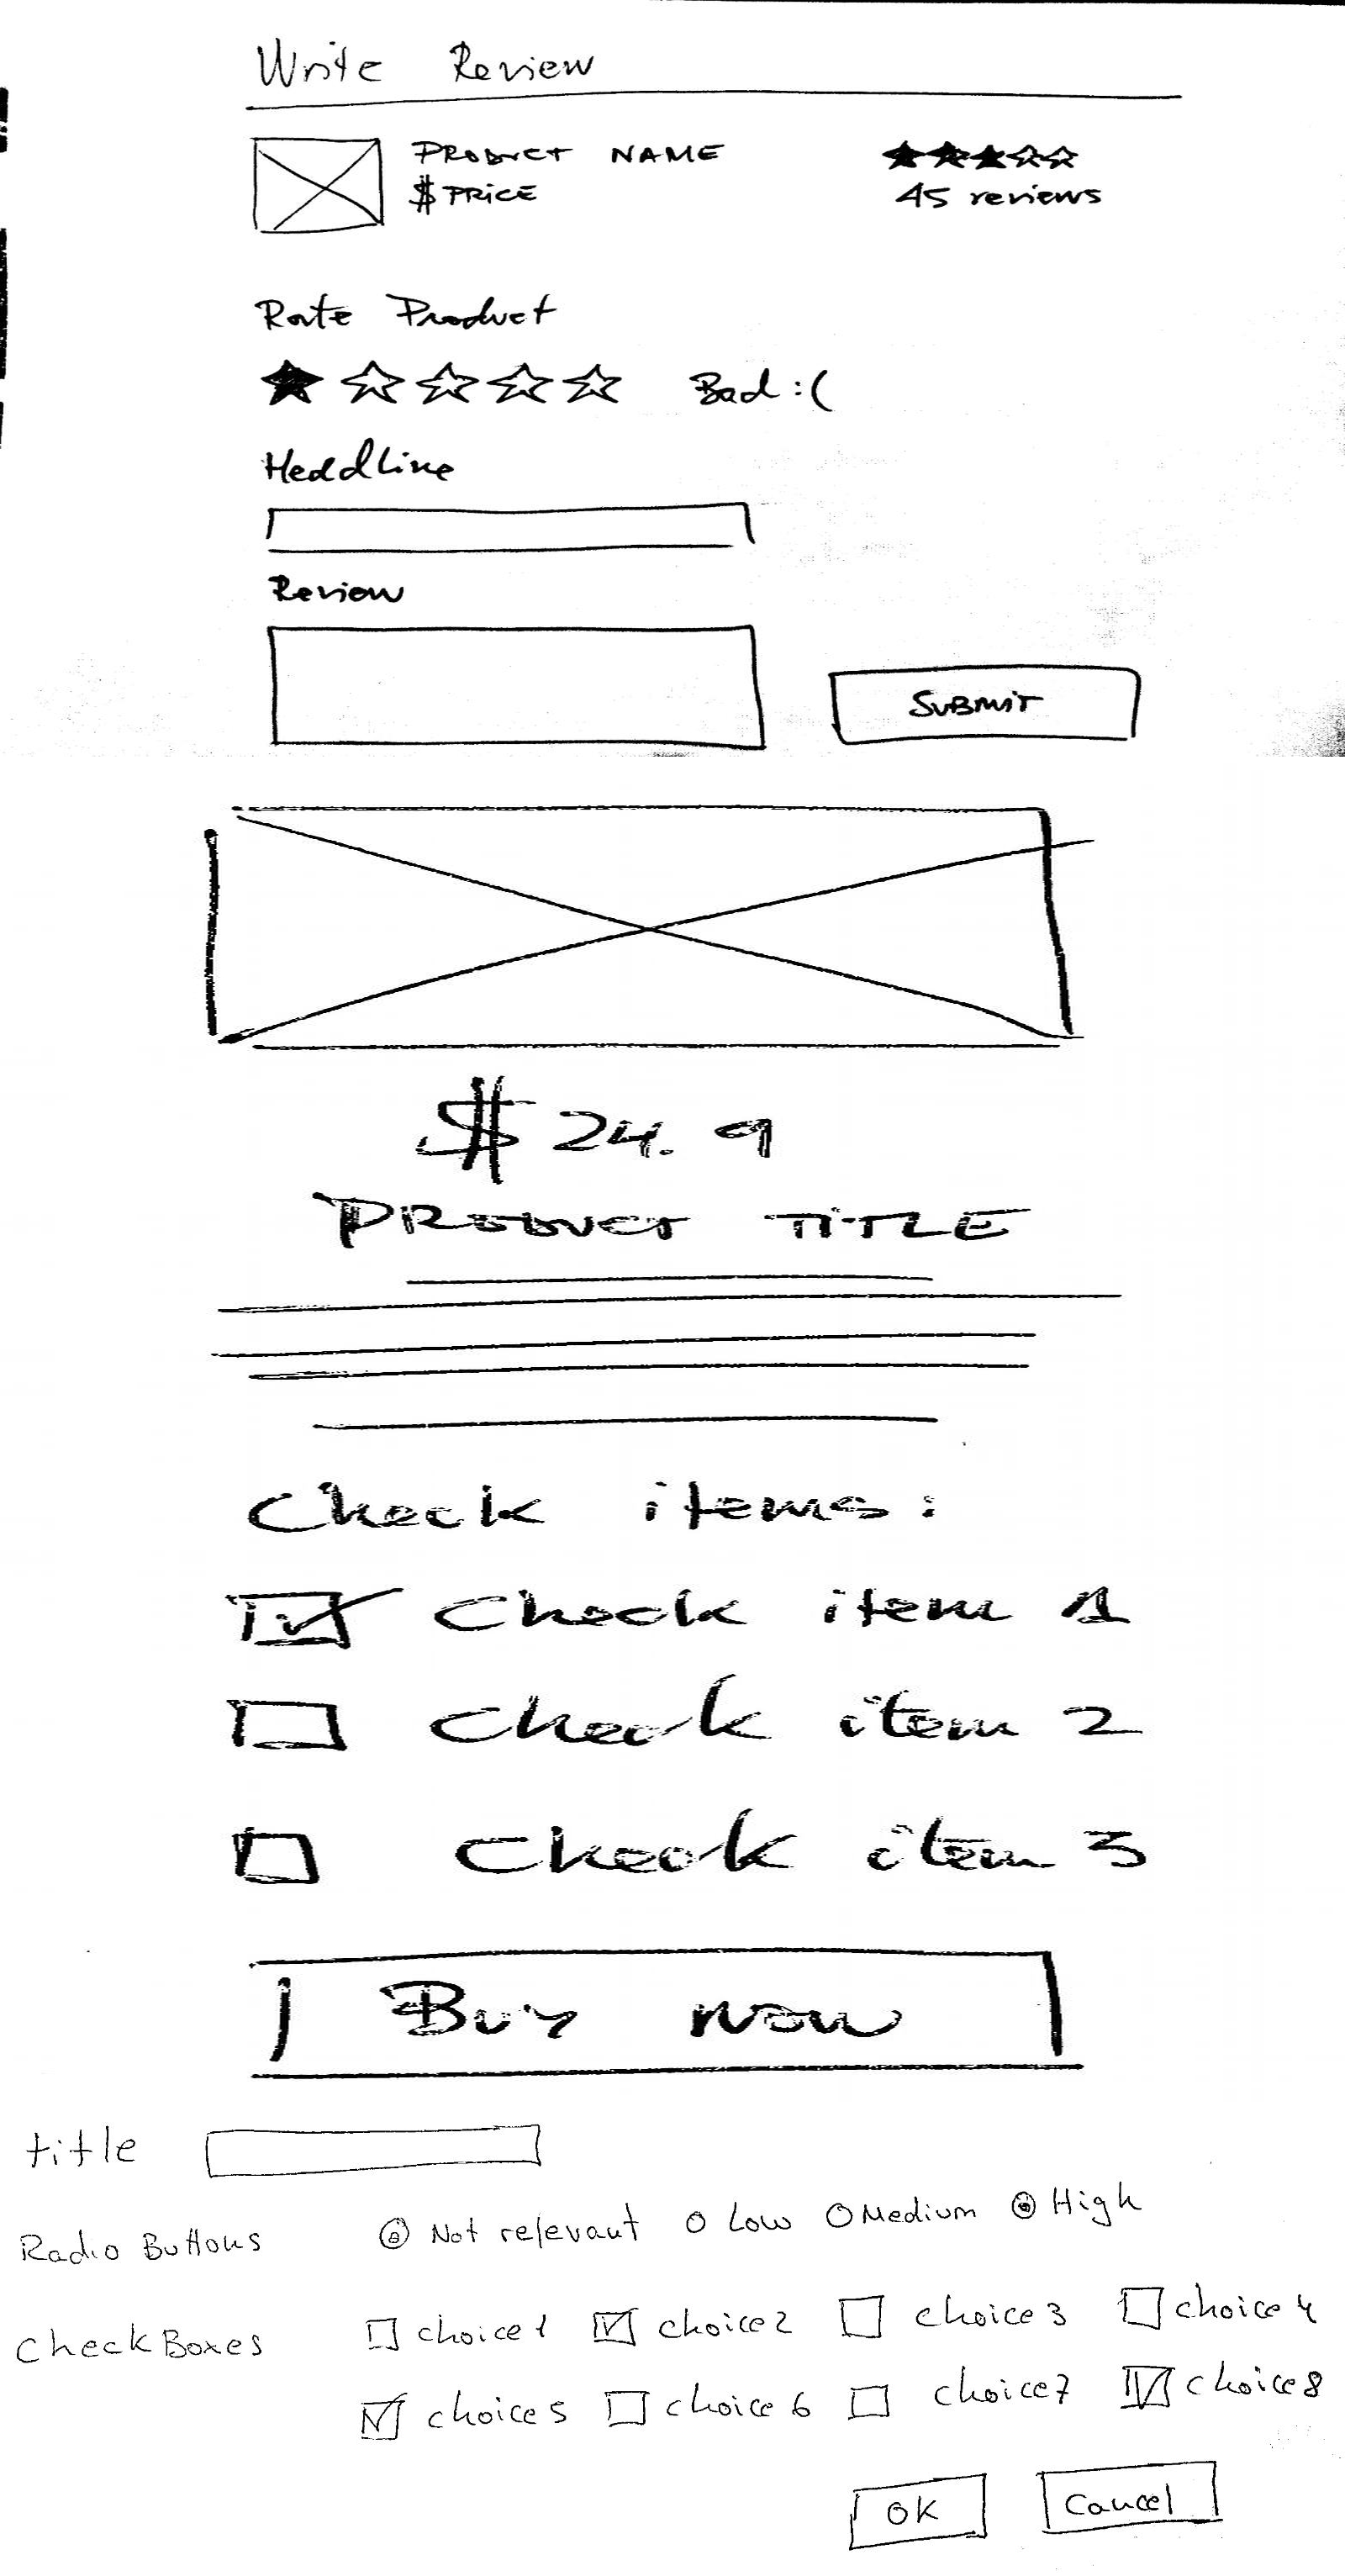 Write Review
PRODUCT NAME
$ PRICE
45 reviews
Rate Product
Bad :(
Headline
Review
SUBMIT
$ 24.9
PRODUCT TITLE
Check items:
Check item 1
Check item 2
Check item 3
Buy now
title
Radio Buttons Not relevant Low Medium High
CheckBoxes choice 1 choice 2 choice 3 choice 4
choice 5 choice 6 choice 7 choice 8
OK Cancel